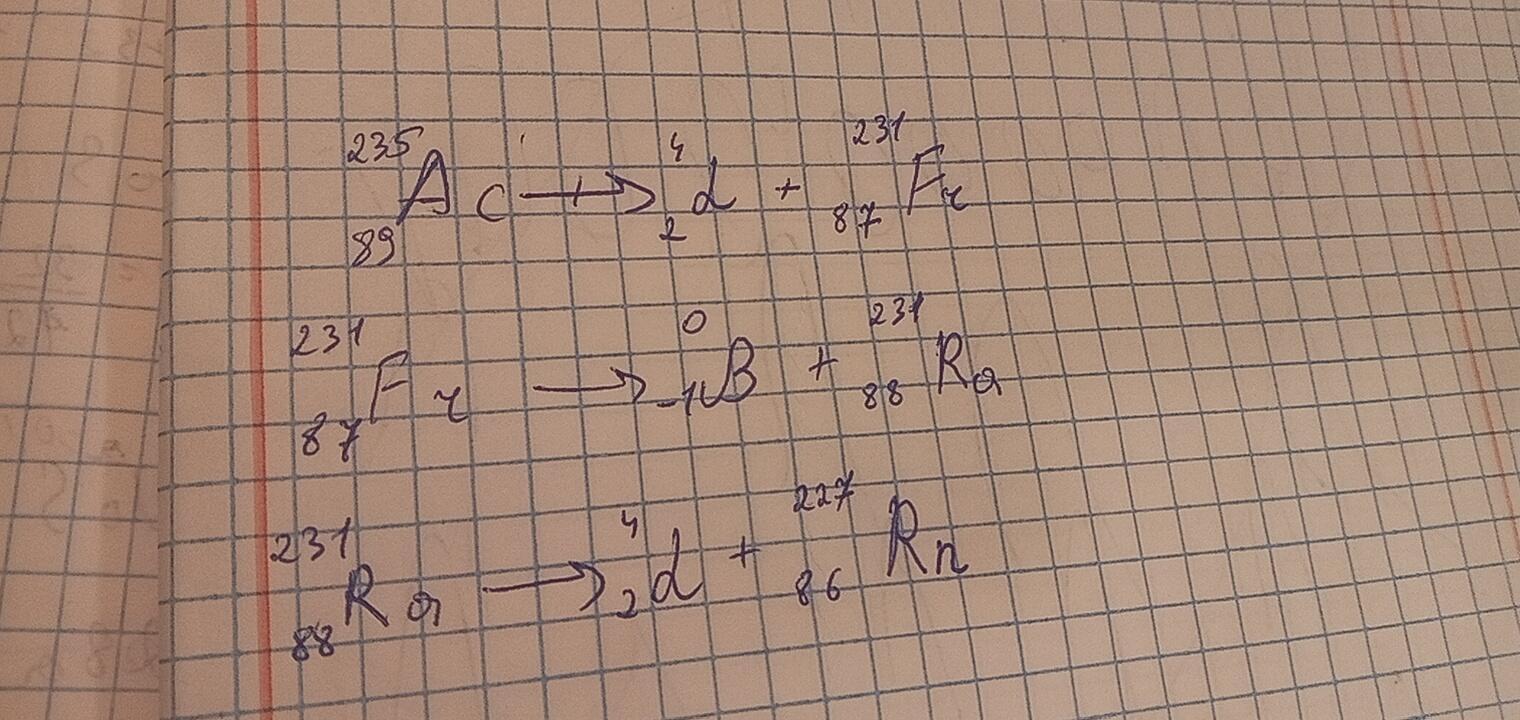 ²³⁵₈₉Ac → ⁴₂α + ²³¹₈₇Fr
²³¹₈₇Fr → ⁰₋₁β + ²³¹₈₈Ra
²³¹₈₈Ra → ⁴₂α + ²²⁷₈₆Rn